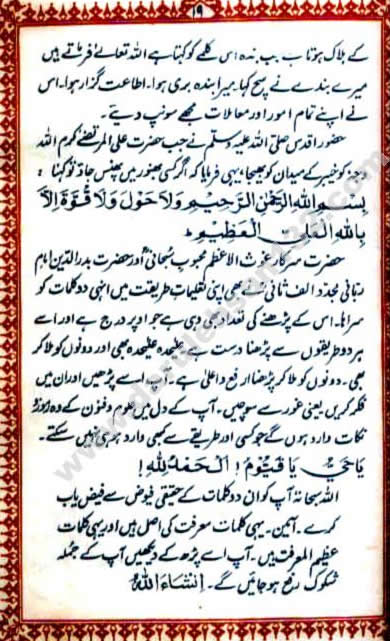 ۱۹
کے ہلاک ہوتا ہے جب بندہ اس کلمے کو کہتا ہے اللہ تعالےٰ فرماتے ہیں
میرے بندے نے سچ کہا میرا بندہ بری ہوا۔ اطاعت گزار ہوا۔ اس
نے اپنے تمام امور اور معاملات مجھے سونپ دیئے۔
حضور اقدس صلی اللہ علیہ وسلم نے جب حضرت علی المرتضٰے کرم اللہ
وجہٗ کو خیبر کے میدان کو بھیجا یہی فرمایا کہ اگر کسی بھنور میں پھنس جاؤ تو کہنا:
بِسْمِ اللهِ الرَّحْمٰنِ الرَّحِيْمِ وَلَا حَوْلَ وَلَا قُوَّةَ اِلَّا
بِاللهِ الْعَلِيِّ الْعَظِيْمِ ط
حضرت سرکار غوث الاعظم محبوب سبحانیؒ اور حضرت بدر الدین امام
ربّانی مجدّد الف ثانیؒ نے بھی اپنی تعلیمات طریقت میں انہی دو کلمات کو
سراہا۔ اس کے پڑھنے کی تعداد بھی وہی ہے جو اوپر درج ہے اور اسے
ہر دو طریقوں سے پڑھنا درست ہے۔ علیحدہ علیحدہ بھی اور دونوں کو ملا کر
بھی۔ دونوں کو ملا کر پڑھنا ارفع و اعلیٰ ہے۔ آپ اسے پڑھیں اور ان میں
فکر کریں یعنی غور سے سوچیں۔ آپ کے دل میں علوم و فنون کے وہ رموز و
نکات وارد ہوں گے جو کسی اور طریقے سے کبھی وارد ہو ہی نہیں سکتے۔
يَا حَيُّ يَا قَيُّوْمُ! اَلْحَمْدُ لِلّٰهِ!
اللہ سبحانہٗ آپ کو ان دو کلمات کے حقیقی فیوض سے فیض یاب
کرے۔ آمین۔ یہی کلمات معرفت کی اصل ہیں اور یہی کلمات
عظیم المعرفت ہیں۔ آپ اسے پڑھ کے دیکھیں آپ کے جملہ
شکوک رفع ہو جائیں گے۔ اِنْشَاءَ اللهُ